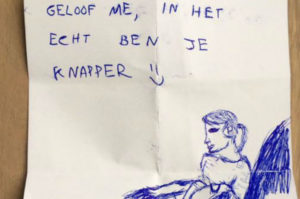 GELOOF ME, IN HET
ECHT BEN JE
KNAPPER !!